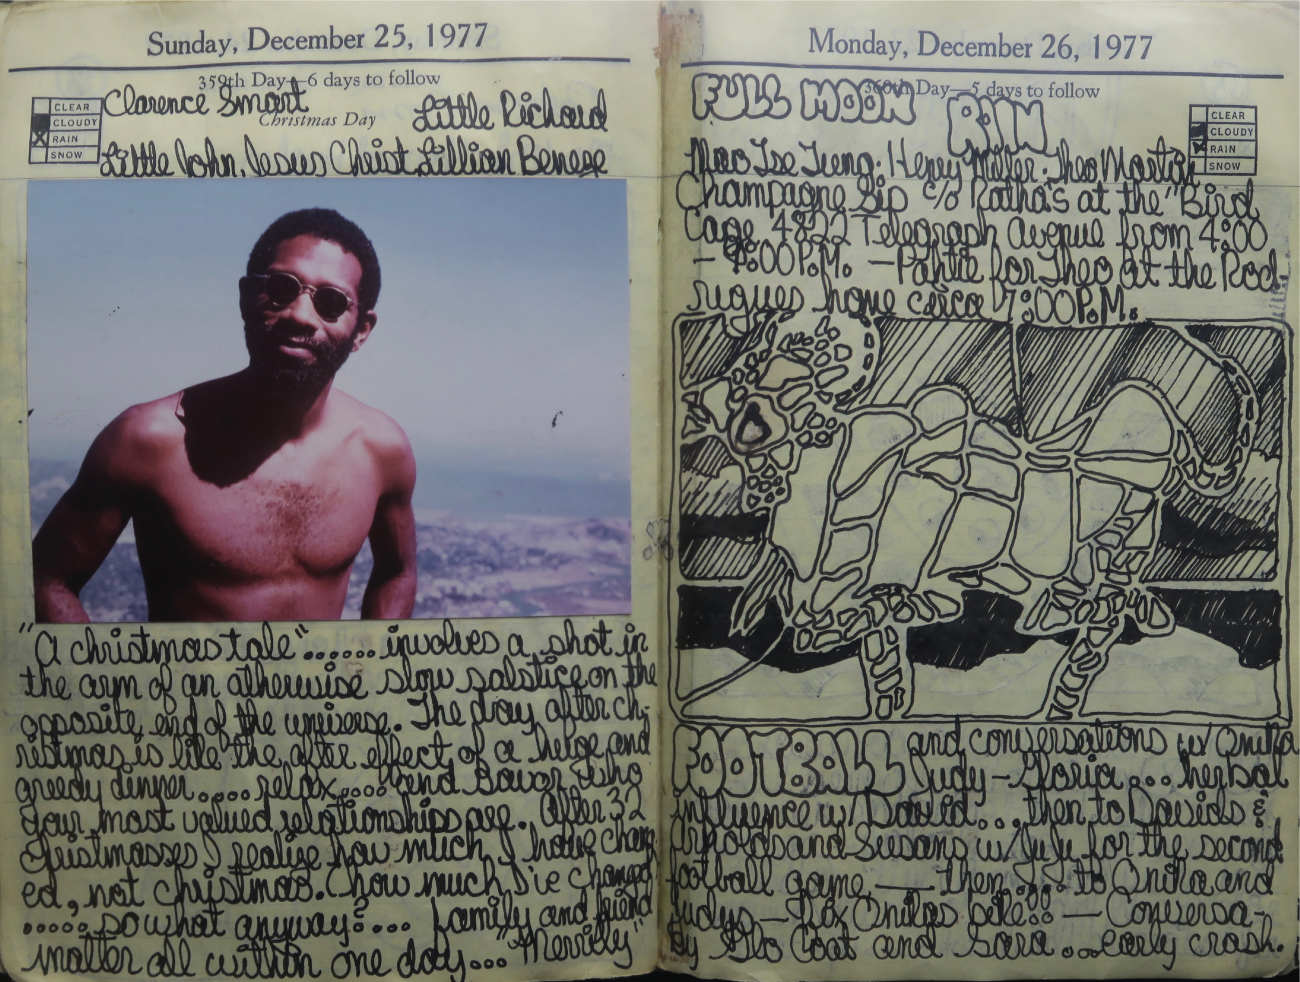 Sunday, December 25, 1977
359th Day—6 days to follow
CLEAR
CLOUDY
RAIN
SNOW
Clarence Smart
Christmas Day
Little Richard
Little John, Jesus Christ, Lillian Benese
"A christmas tale"...... involves a shot in
the arm of an otherwise slow solstice on the
opposite end of the universe. The day after ch-
ristmas is like the after effect of a huge and
greedy dinner..... relax.... and savor who
your most valued relationships are. After 32
Christmasses I realize how much I have chang
ed, not christmas. (how much I've changed
..... so what anyway?... family and friend
matter all within one day... "Merrily"
Monday, December 26, 1977
360th Day—5 days to follow
FULL MOON
RAIN
CLEAR
CLOUDY
RAIN
SNOW
Mao Tse Tung. Henry Miller. Theo Martin
Champagne Sip c/o Ratha's at the "Bird
Cage 4822 Telegraph Avenue from 4:00
— 9:00 P.M. — for Theo at the Rod
rigues home circa 7:00 P.M.
FOOTBALL and conversations w/ Onika
Judy - Gloria... herbal
influence w/ David... then to Davids &
Arnolds and Susans w/ JuJu for the second
football game — then to Onika and
Judys — Fix Onikas bike!! — Conversa-
By Glo Coat and Sara... early crash.